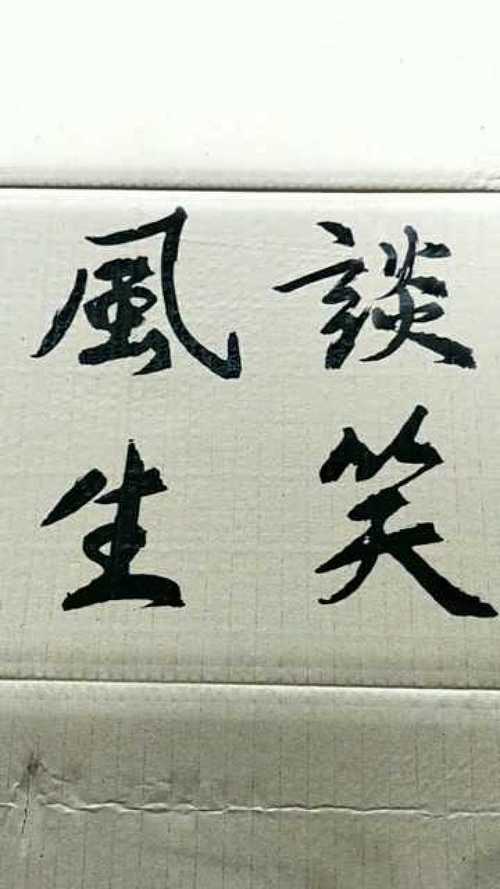 談笑
風生